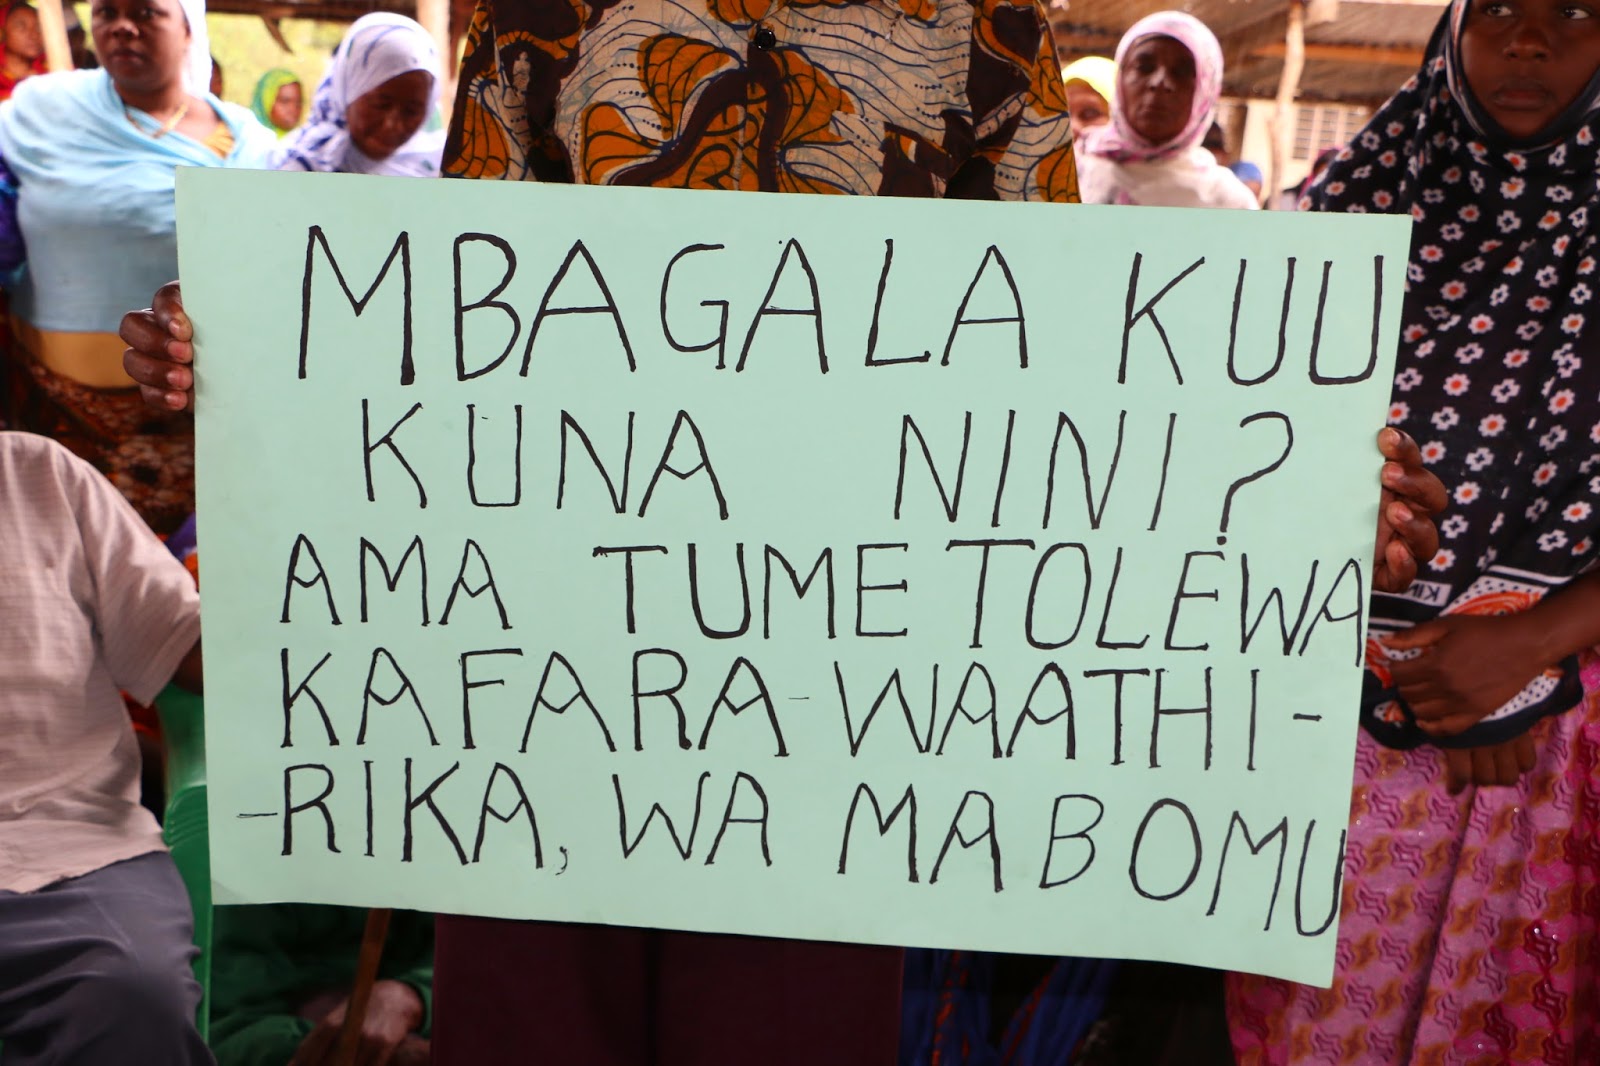 MBAGALA KUU
KUNA NINI?
AMA TUMETOLEWA
KAFARA-WAATHI-
-RIKA, WA MABOMU